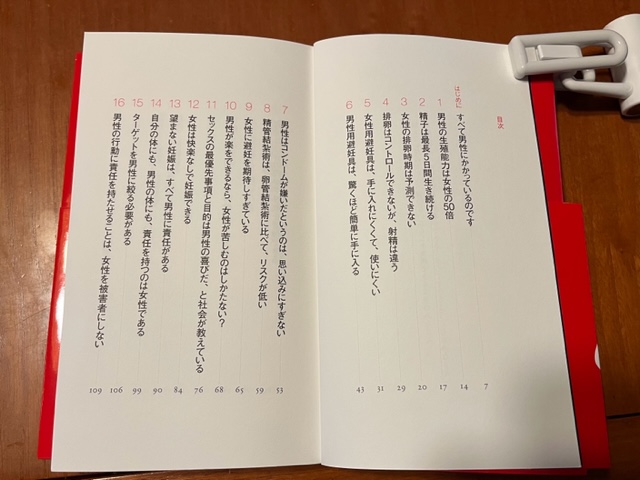 目次
はじめに すべて男性にかかっているのです 7
1 男性の生殖能力は女性の50倍 14
2 精子は最長5日間生き続ける 17
3 女性の排卵時期は予測できない 20
4 排卵はコントロールできないが、射精は違う 29
5 女性用避妊具は、手に入れにくくて、使いにくい 31
6 男性用避妊具は、驚くほど簡単に手に入る 43
7 男性はコンドームが嫌いだというのは、思い込みにすぎない 53
8 精管結紮術は、卵管結紮術に比べて、リスクが低い 59
9 女性に避妊を期待しすぎている 65
10 男性が楽をできるなら、女性が苦しむのはしかたない? 68
11 セックスの最優先事項と目的は男性の喜びだ、と社会が教えている 76
12 女性は快楽なしで妊娠できる 78
13 望まない妊娠は、すべて男性に責任がある 84
14 自分の体にも、男性の体にも、責任を持つのは女性である 90
15 ターゲットを男性に絞る必要がある 99
16 男性の行動に責任を持たせることは、女性を被害者にしない 106
109